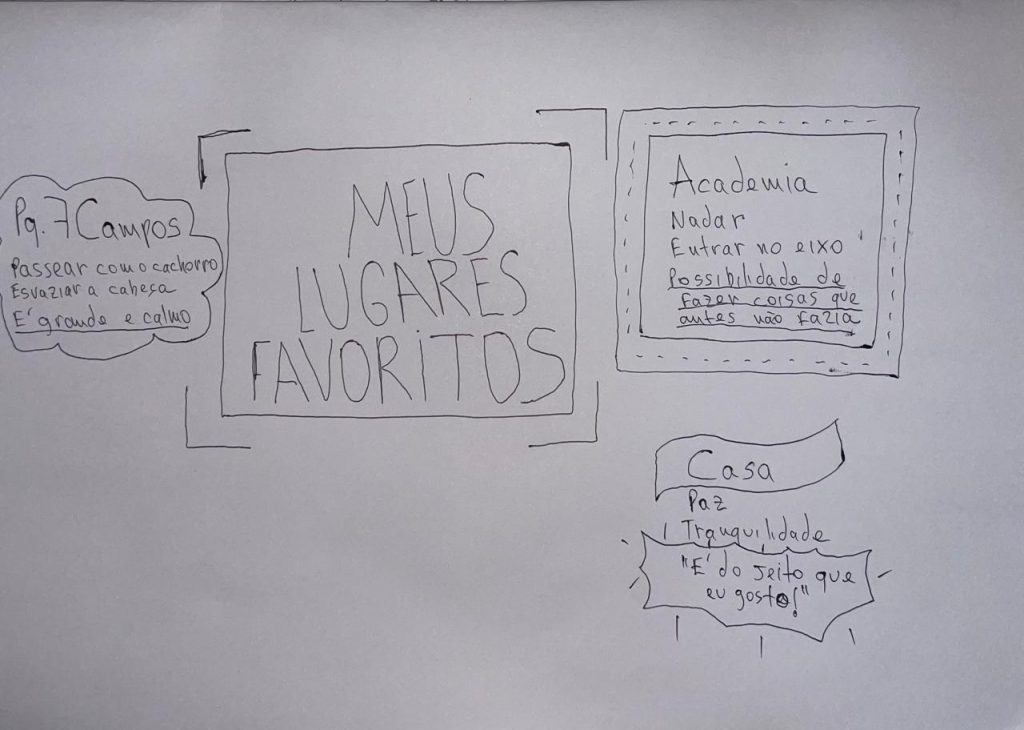 MEUS
LUGARES
FAVORITOS
Pq. 7 Campos
Passear com o cachorro
Esvaziar a cabeça
É grande e calmo
Academia
Nadar
Entrar no eixo
Possibilidade de
fazer coisas que
antes não fazia
Casa
Paz
Tranquilidade
"É do jeito que
eu gosto!"